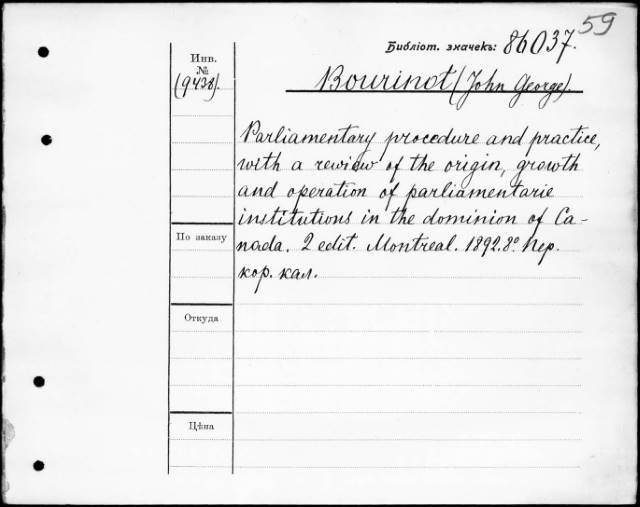 59
Библіот. значекъ: 86037.
Инв.
№
(9438).
Bourinot (John George).
Parliamentary procedure and practice,
with a rewiow of the origin, growth
and operation of parliamentarie
institutions in the dominion of Ca-
nada. 2 edit. Montreal. 1892. 8º. Пер.
кор. кал.
По заказу
Откуда
Цѣна